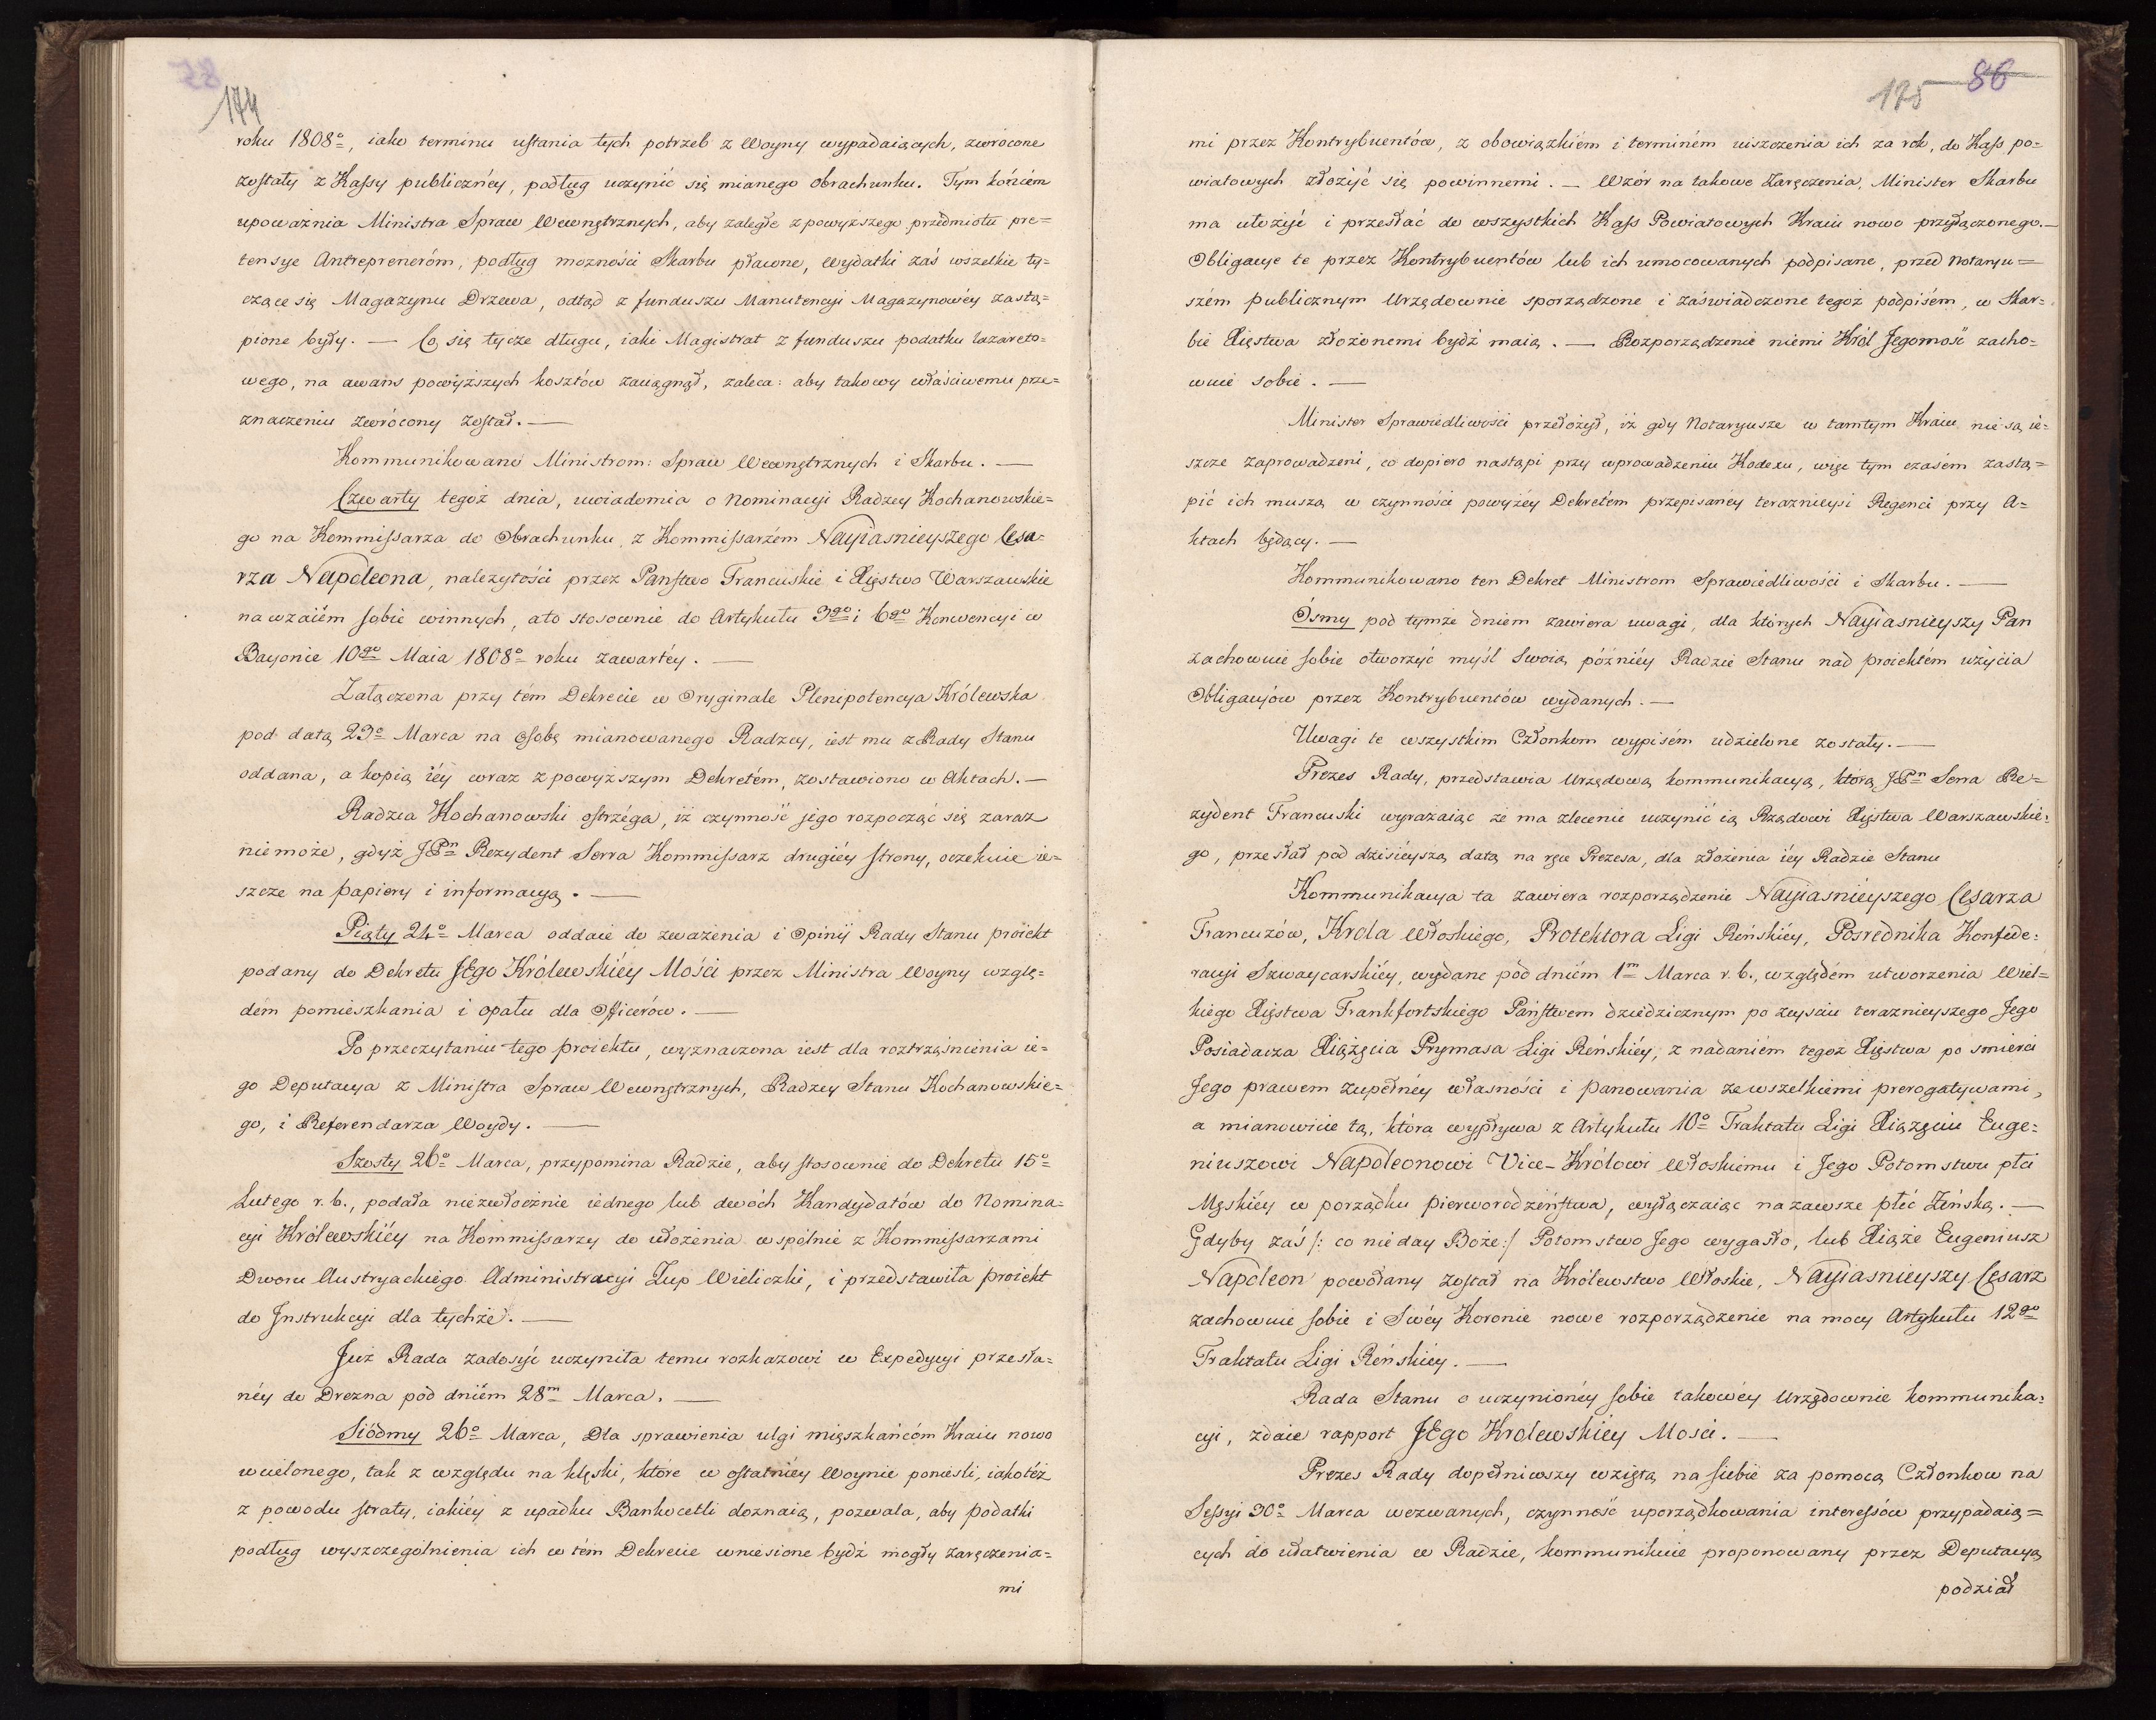 78
174
roku 1808º, iako terminu ustania tych potrzeb z Woyny wypadaiących, zwrócone
zostały z Kassy publicznéy, podług uczynić się mianego obrachunku. Tym końcem
upoważnia Ministra Spraw Wewnętrznych, aby zaległe z powyższego przedmiotu pre=
tensye Antreprenerom, podług możności Skarbu płacone, wydatki zaś wszelkie ty=
czące się Magazynu Drzewa, odtąd z funduszu Manutencyi Magazynowéy zastą=
pione były. — Co się tycze długu, iaki Magistrat z funduszu podatku lazareto=
wego, na awans powyższych kosztów zaciągnął, zaleca: aby takowy właściwemu prze=
znaczeniu zwrócony został. —
Kommunikowano Ministrom: Spraw Wewnętrznych i Skarbu. —
Czwarty tegoż dnia, uwiadomia o Nominacyi Radzcy Kochanowskie=
go na Kommissarza do Obrachunku, z Kommissarzém Nayiasnieyszego Cesa=
rza Napoleona, należytości przez Państwo Francuskie i Xięstwo Warszawskie
nawzaiém sobie winnych, a to stosownie do Artykułu 3go i 6go Konwencyi w
Bayonie 10go Maia 1808º roku zawartéy. —
Załączona przy tém Dekrecie w Oryginale Plenipotencya Królewska
pod datą 23º Marca na osobę mianowanego Radzcy, iest mu z Rady Stanu
oddana, a kopią iéy wraz z powyższym Dekretém, zostawiono w Aktach. —
Radzca Kochanowski ostrzéga, iż czynność jego rozpocząć się zaraz
niemoże, gdyż JPn Rezydent Serra Kommissarz drugiéy strony, oczekuie ie=
szcze na papiery i informacyą. —
Piąty 24º Marca oddaie do zważenia i Opinii Rady Stanu proiekt
podany do Dekretu JEgo Królewskiéy Mości przez Ministra Woyny wzglę=
dém pomieszkania i opału dla Officerów. —
Po przeczytaniu tego proiektu, wyznaczona iest dla roztrząśnienia ie=
go Deputacya z Ministra Spraw Wewnętrznych, Radzcy Stanu Kochanowskie=
go, i Referendarza Woydy. —
Szosty 26º Marca, przypomina Radzie, aby stosownie do Dekretu 15º
Lutego r. b., podała niezwłocznie iednego lub dwóch Kandydatów do Nomina=
cyi Królewskiéy na Kommissarzy do ułożenia wspólnie z Kommissarzami
Dworu Austryackiego Administracyi Żup Wieliczki, i przedstawiła proiekt
do Instrukcyi dla tychże. —
Już Rada zadosyć uczyniła temu rozkazowi w Expedycyi przesła=
néy do Drezna pod dniém 28m Marca. —
Siódmy 26º Marca, Dla sprawienia ulgi mięszkańcóm Kraiu nowo
wcielonego, tak z względu na klęski, które w ostatniéy Woynie ponieśli, iakoteż
z powodu straty, iakiéy z upadku Bankocetli doznaią, pozwala, aby podatki
podług wyszczególnienia ich w tém Dekrecie wniesione bydź mogły zaręczenia=
mi
175 86
mi przez Kontrybuentów, z obowiązkiém i terminém uiszczenia ich za rok, do Kass po=
wiatowych złożyć się powinnemi. — Wzór na takowe Zaręczenia, Minister Skarbu
ma ułożyć i przesłać do wszystkich Kass Powiatowych Kraiu nowo przyłączonego. —
Obligacye te przez Kontrybuentów lub ich umocowanych podpisane, przed Notaryu=
szém publicznym Urzędownie sporządzone i zaświadczone tegoż podpisém, w Skar=
bie Xięstwa złożonemi bydź maią. — Rozporządzenie niemi Król Jegomość zacho=
wuie sobie. —
Minister Sprawiedliwości przełożył, iż gdy Notaryusze w tamtym Kraiu nie są ie=
szcze zaprowadzeni, co dopiero nastąpi przy wprowadzeniu Kodexu, więc tym czasém zastą=
pić ich muszą, w czynności powyżéy Dekretém przepisanéy teraznieysi Regenci przy A=
ktach będący. —
Kommunikowano ten Dekret Ministrom Sprawiedliwości i Skarbu. —
Ósmy pod tymże dniem zawiera uwagi, dla których Nayiasnieyszy Pan
zachowuie sobie otworzyć myśl swoią późniéy Radzie Stanu nad proiektém użycia
Obligacyów przez Kontrybuentów wydanych. —
Uwagi te wszystkim Członkom wypisém udzielone zostały. —
Prezes Rady, przedstawia Urzędową kommunikacyą, którą JPn Serra Re=
zydent Francuski wyrażaiąc że ma zlecenie uczynić ią Rządowi Xięstwa Warszawskie=
go, przesłał pod dzisieyszą datą na ręce Prezesa, dla złożenia iéy Radzie Stanu
Kommunikacya ta zawiera rozporządzenie Nayiasnieyszego Cesarza
Francuzów, Króla Włoskiego, Protektora Ligi Reńskiéy, Posrednika Konfede=
racyi Szwaycarskiéy, wydane pod dniém 1m Marca r. b., względém utworzenia Wiel=
kiego Xięstwa Frankfortskiego Państwem dziedzicznym po zeysciu teraznieyszego Jego
Posiadacza Xiążęcia Prymasa Ligi Reńskiéy, z nadaniém tegoż Xięstwa po smierci
Jego prawem zupełnéy własności i panowania ze wszelkiemi prerogatywami,
a mianowicie tą, która wypływa z Artykułu 10º Traktatu Ligi Xiążęciu Euge=
niuszowi Napoleonowi Vice-Królowi Włoskiemu i Jego Potomstwu płci
Męskiéy w porządku pierworodzeństwa, wyłączaiąc nazawsze płeć Żeńską. —
Gdyby zaś /: co nie day Boże :/ Potomstwo Jego wygasło, lub Xiąże Eugeniusz
Napoleon powołany został na Królewstwo Włoskie, Nayiasnieyszy Cesarz
zachowuie sobie i Swéy Koronie nowe rozporządzenie na mocy Artykułu 12go
Traktatu Ligi Reńskiéy. —
Rada Stanu o uczynionéy sobie takowéy Urzędownie kommunika=
cyi, zdaie rapport JEgo Krolewskiéy Mosci. —
Prezes Rady dopełniwszy wziętą na siebie za pomocą Członkow na
Sessyi 30º Marca wezwanych, czynność uporządkowania interessów przypadaią=
cych do ułatwienia w Radzie, kommunikuie proponowany przez Deputacyą
podział